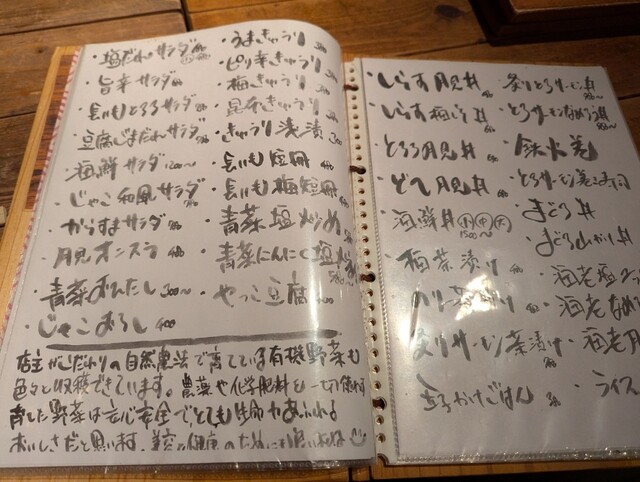 ・塩だれサラダ
・旨辛サラダ
・長いもとろろサラダ
・豆腐ごまだれサラダ
・海鮮サラダ 1200〜
・じゃこ和風サラダ
・からすまサラダ
・月見オニスラ
・青菜おひたし 300〜
・じゃこおろし 400
・うまきゅうり
・ピリ辛きゅうり
・梅きゅうり
・昆布きゅうり
・きゅうり浅漬 300
・長いも短冊
・長いも梅短冊
・青菜塩炒め
・青菜にんにく塩炒め
・やっこ豆腐 400
店主がこだわりの自然農法で育てている有機野菜も
色々と収穫できています。農薬や化学肥料を一切使わず
育てた野菜は安心安全で、とても生命力あふれる
おいしさだと思います。美容と健康のためにも
・しらす月見丼
・しらす梅しそ丼
・とろろ月見丼
・どて月見丼
・海鮮丼 小 中 大 1500〜
・梅茶漬け
・のり茶漬け
・炙りサーモン茶漬け
・玉子かけごはん
・炙りとろサーモン丼
・とろサーモンなめろう丼
・鉄火巻
・まぐろ丼
・まぐろ山かけ丼
・海老塩
・海老なめ
・海老月
・ライス